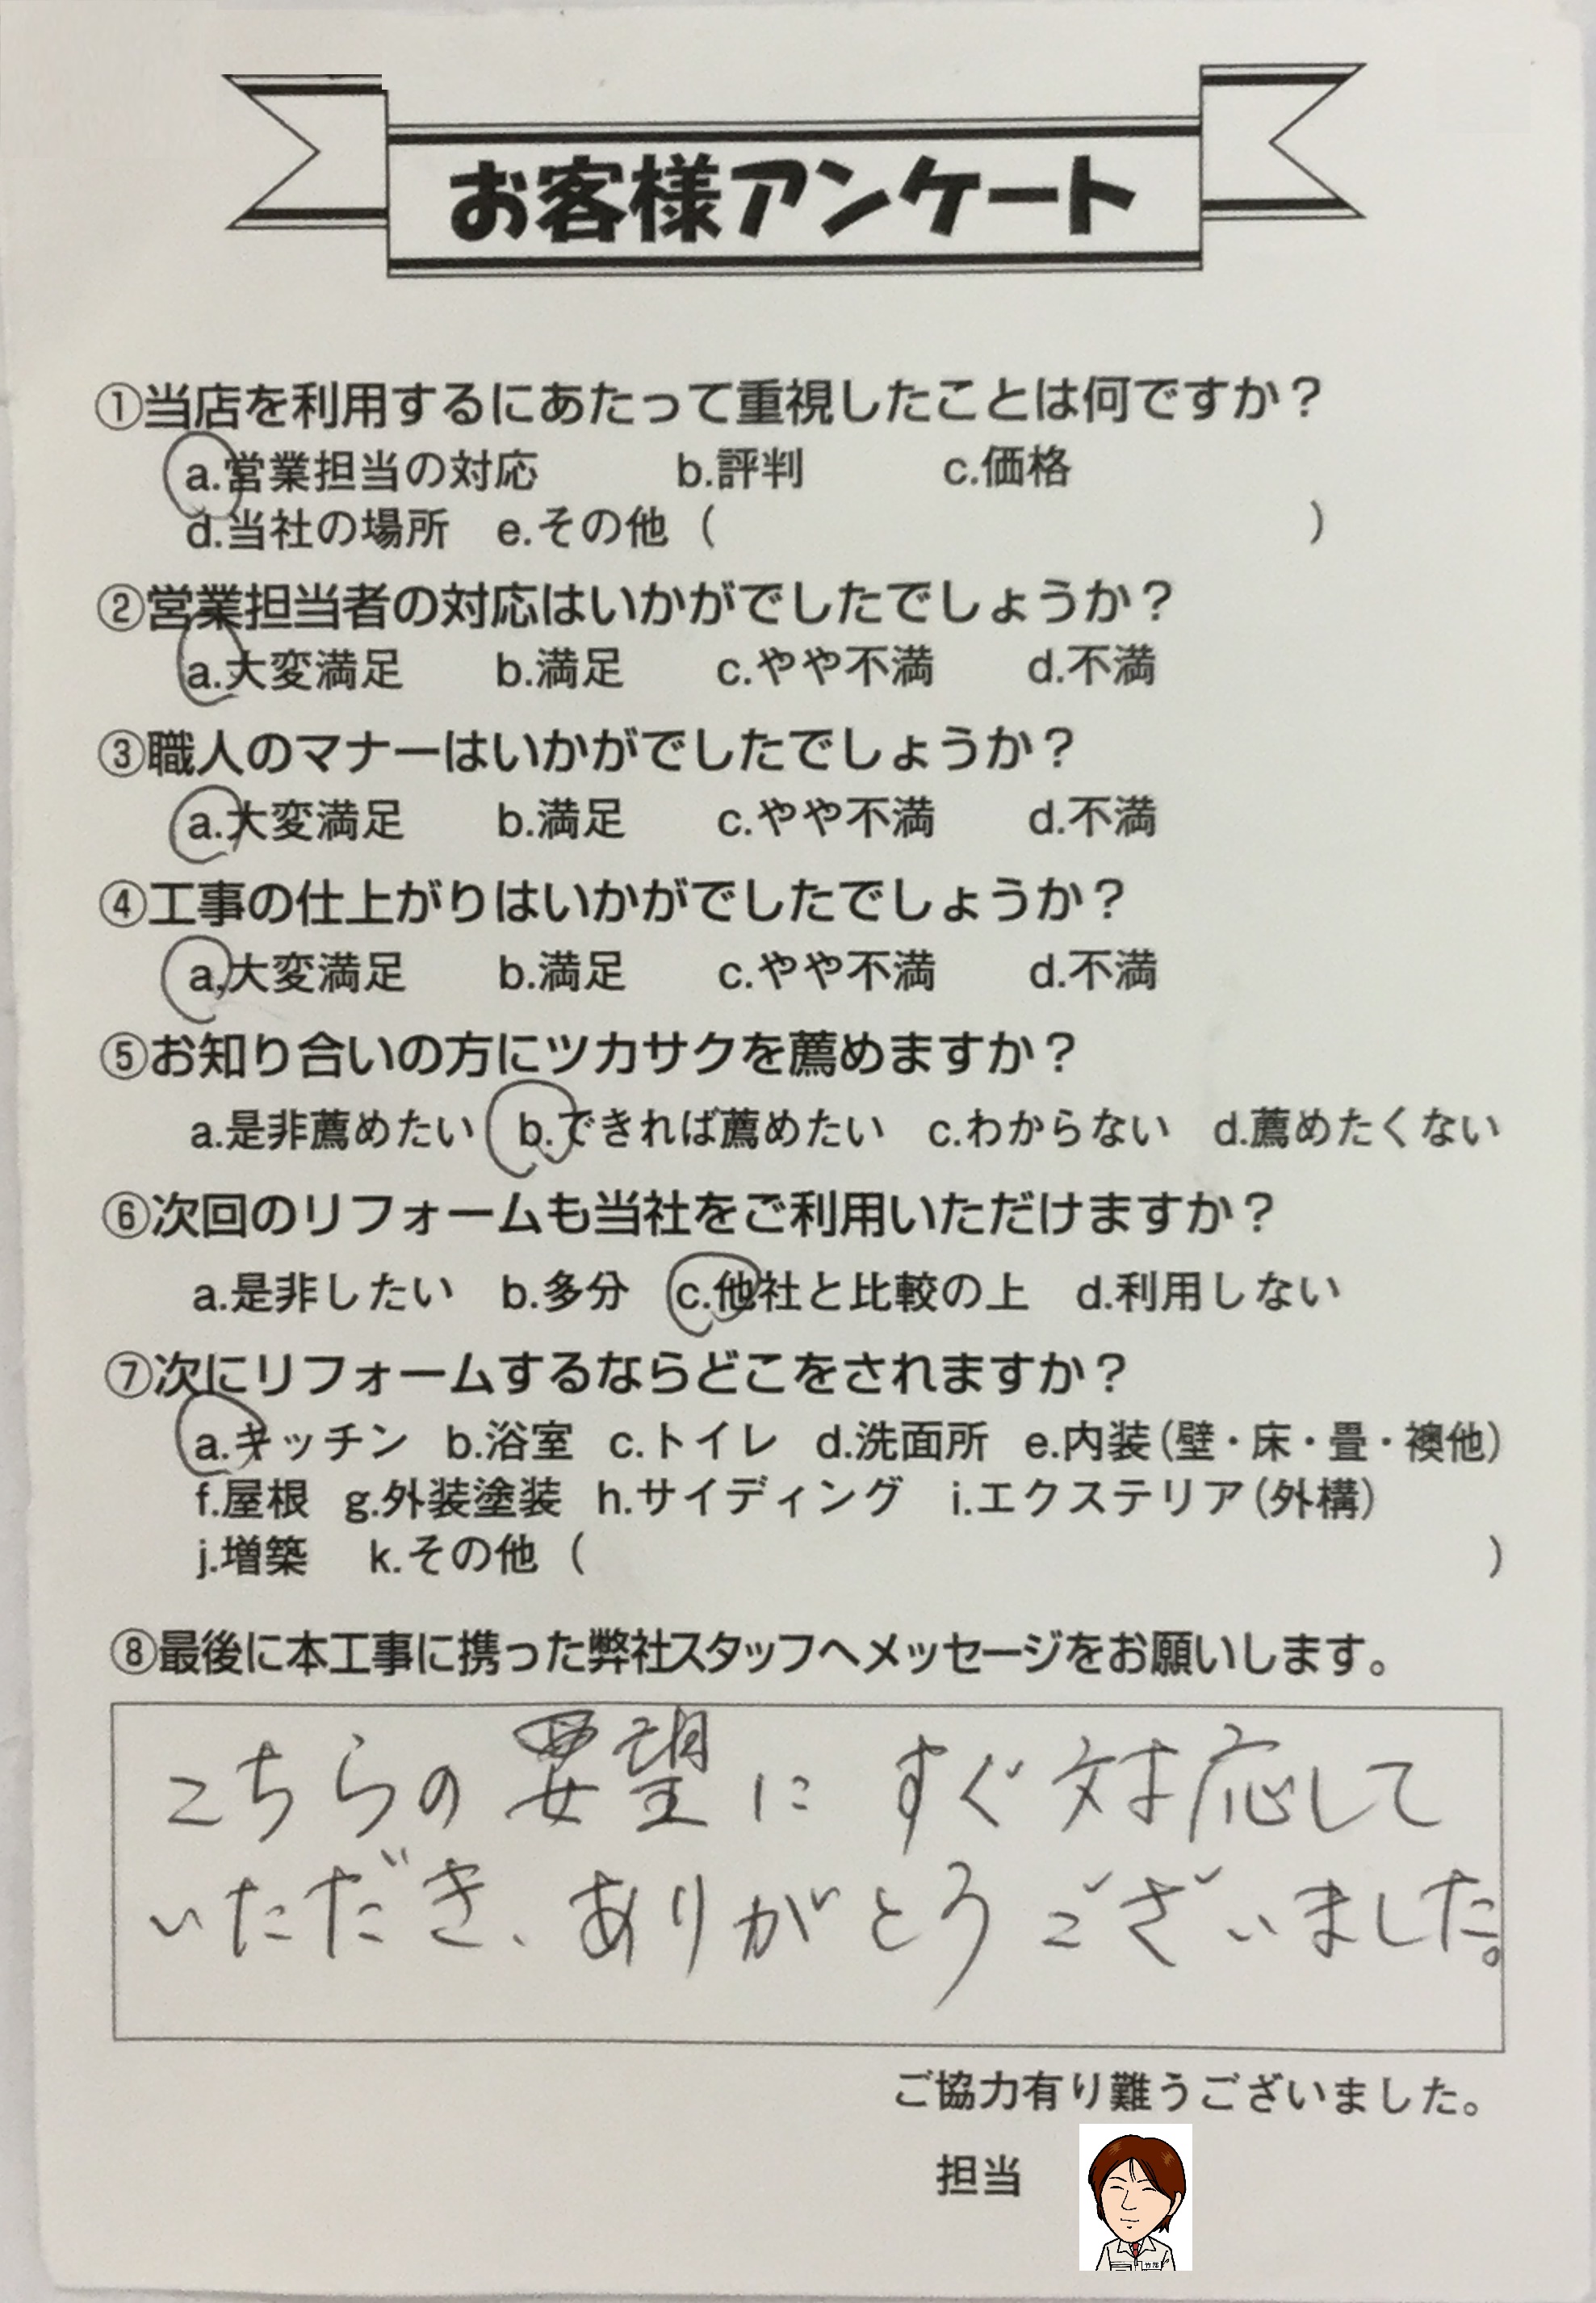 お客様アンケート
①当店を利用するにあたって重視したことは何ですか？
a.営業担当の対応 b.評判 c.価格
d.当社の場所 e.その他（ ）
②営業担当者の対応はいかがでしたでしょうか？
a.大変満足 b.満足 c.やや不満 d.不満
③職人のマナーはいかがでしたでしょうか？
a.大変満足 b.満足 c.やや不満 d.不満
④工事の仕上がりはいかがでしたでしょうか？
a.大変満足 b.満足 c.やや不満 d.不満
⑤お知り合いの方にツカサクを薦めますか？
a.是非薦めたい b.できれば薦めたい c.わからない d.薦めたくない
⑥次回のリフォームも当社をご利用いただけますか？
a.是非したい b.多分 c.他社と比較の上 d.利用しない
⑦次にリフォームするならどこをされますか？
a.キッチン b.浴室 c.トイレ d.洗面所 e.内装（壁・床・畳・襖他）
f.屋根 g.外装塗装 h.サイディング i.エクステリア（外構）
j.増築 k.その他（ ）
⑧最後に本工事に携った弊社スタッフへメッセージをお願いします。
こちらの要望に すぐ対応して
いただき、ありがとうございました。
ご協力有り難うございました。
担当